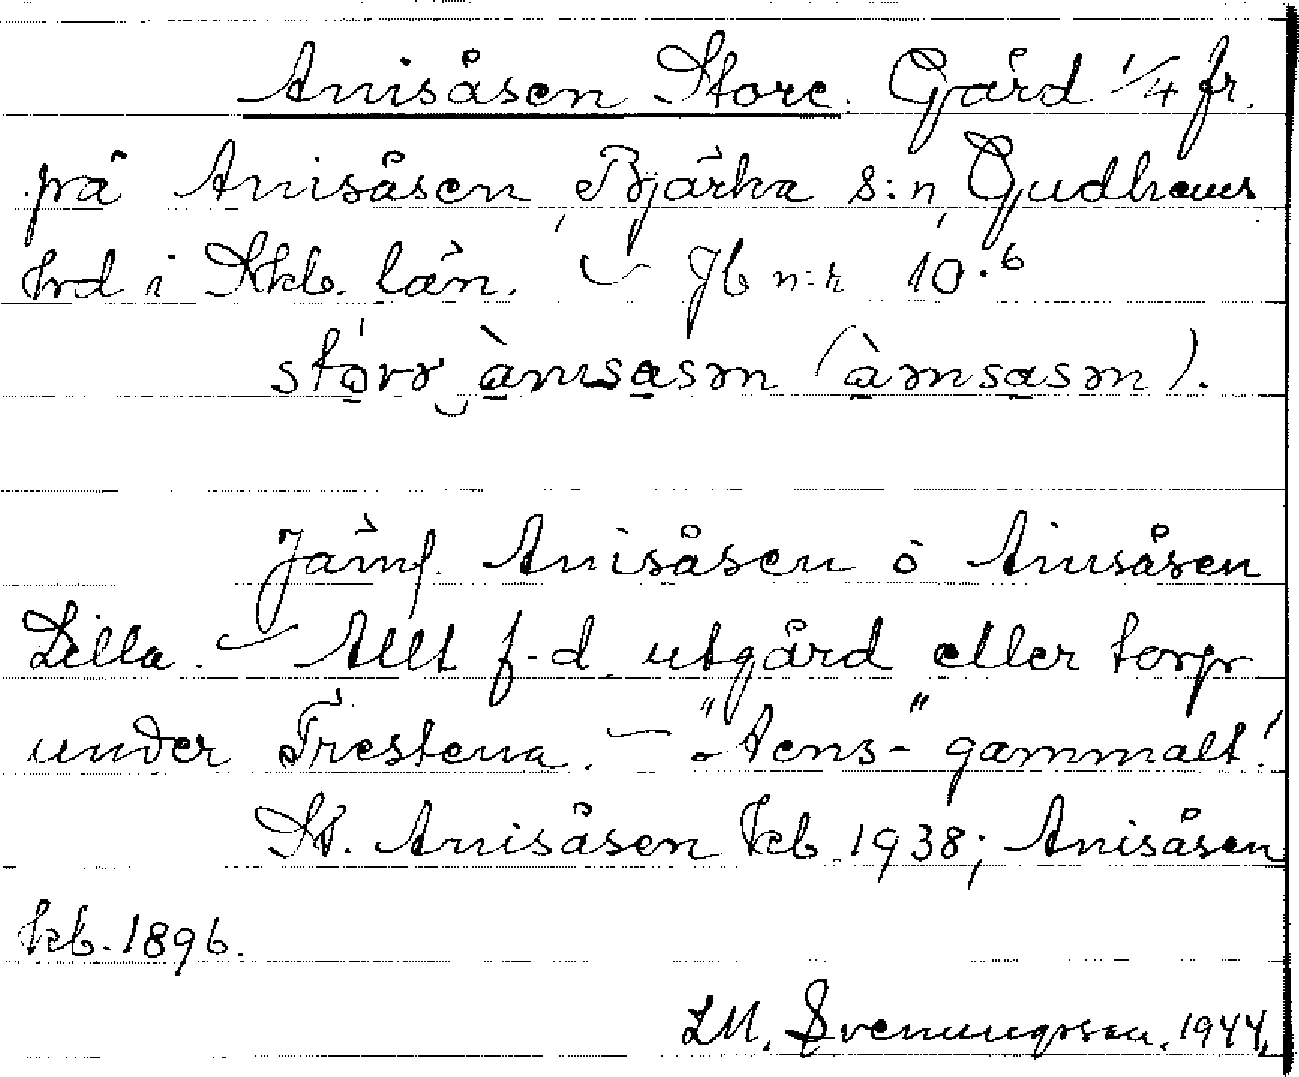 Anisåsen Store. Gård 1/4 fr.
på Anisåsen, Bjärka s:n, Gudhems
hrd i Skb. län. — Jb n:r 10.6
Jämf. Anisåsen o Anisåsen
Lilla. — Allt f.d. utgård eller torp
under Trestena. — "Aens-" gammalt!
St. Anisåsen kb. 1938; Anisåsen
kb. 1896.
LM. Svenungsson. 1944.